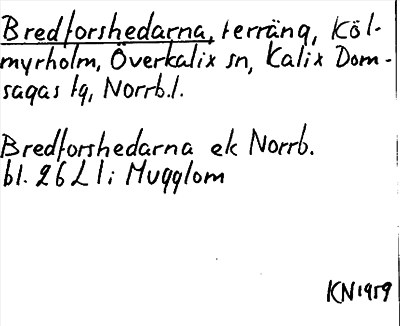 Bredforshedarna, terräng, Köl-
myrholm, Överkalix sn, Kalix Dom-
sagas tg, Norrb.l.
Bredforshedarna ek Norrb.
bl. 26 L l; Mugglom
KN 1959